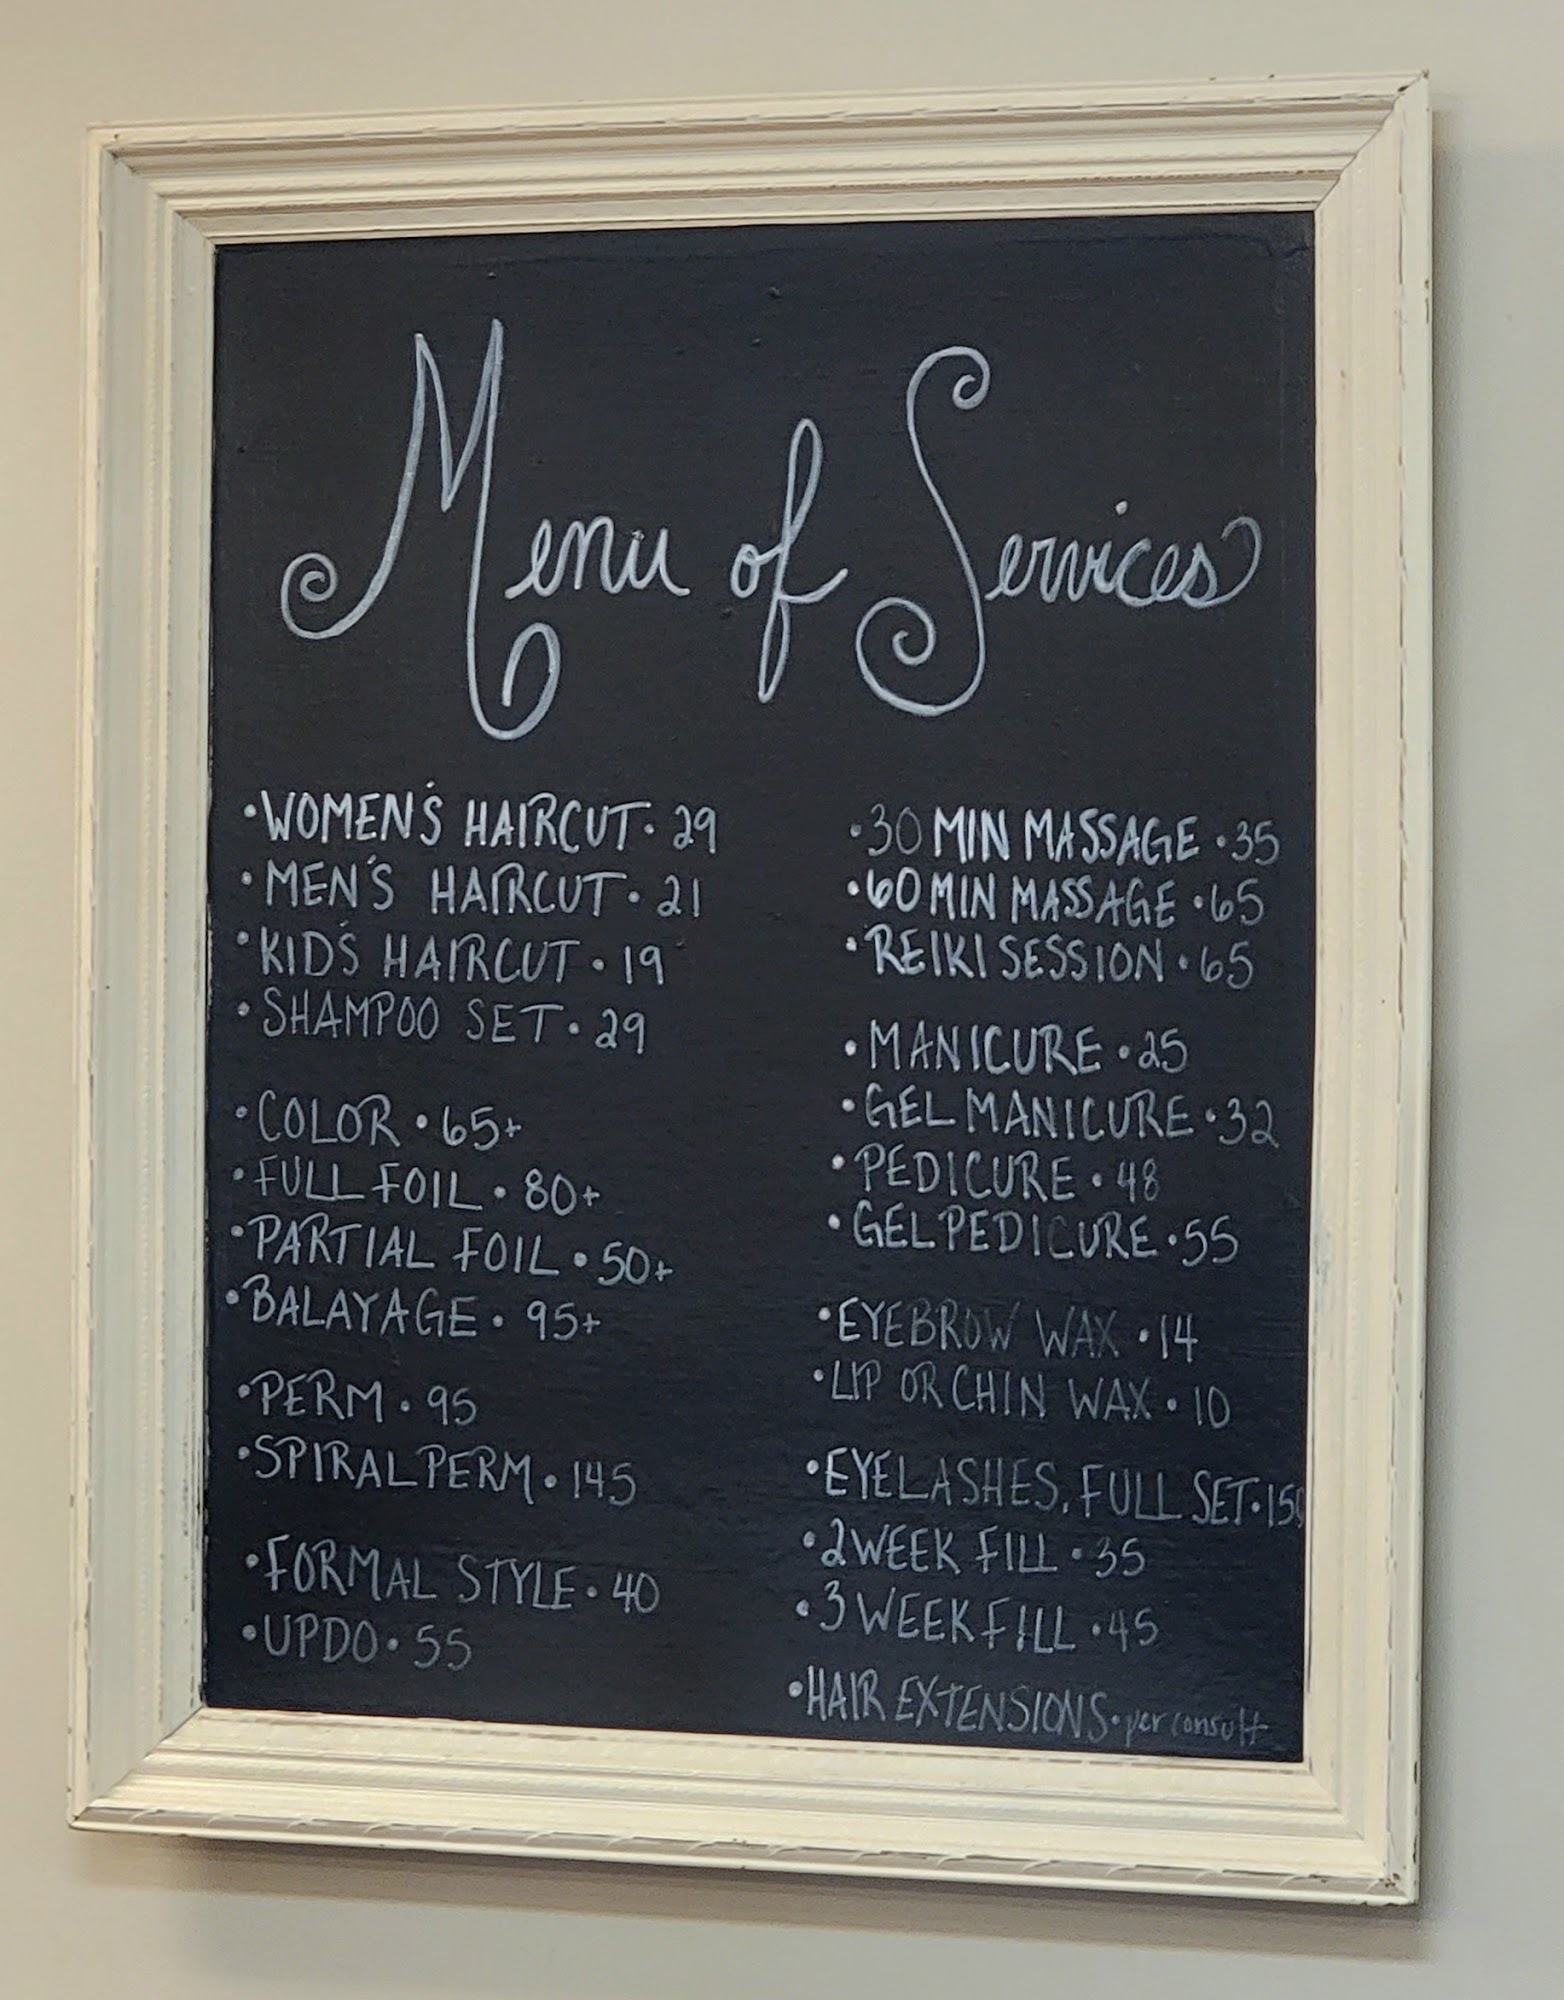 Menu of Services
•WOMEN'S HAIRCUT•29
•MEN'S HAIRCUT•21
•KID'S HAIRCUT•19
•SHAMPOO SET•29
•COLOR•65+
•FULL FOIL•80+
•PARTIAL FOIL•50+
•BALAYAGE•95+
•PERM•95
•SPIRAL PERM•145
•FORMAL STYLE•40
•UPDO•55
•30 MIN MASSAGE•35
•60 MIN MASSAGE•65
•REIKI SESSION•65
•MANICURE•25
•GEL MANICURE•32
•PEDICURE•48
•GEL PEDICURE•55
•EYEBROW WAX•14
•LIP OR CHIN WAX•10
•EYELASHES, FULL SET•150
•2 WEEK FILL•35
•3 WEEK FILL•45
•HAIR EXTENSIONS•per consult